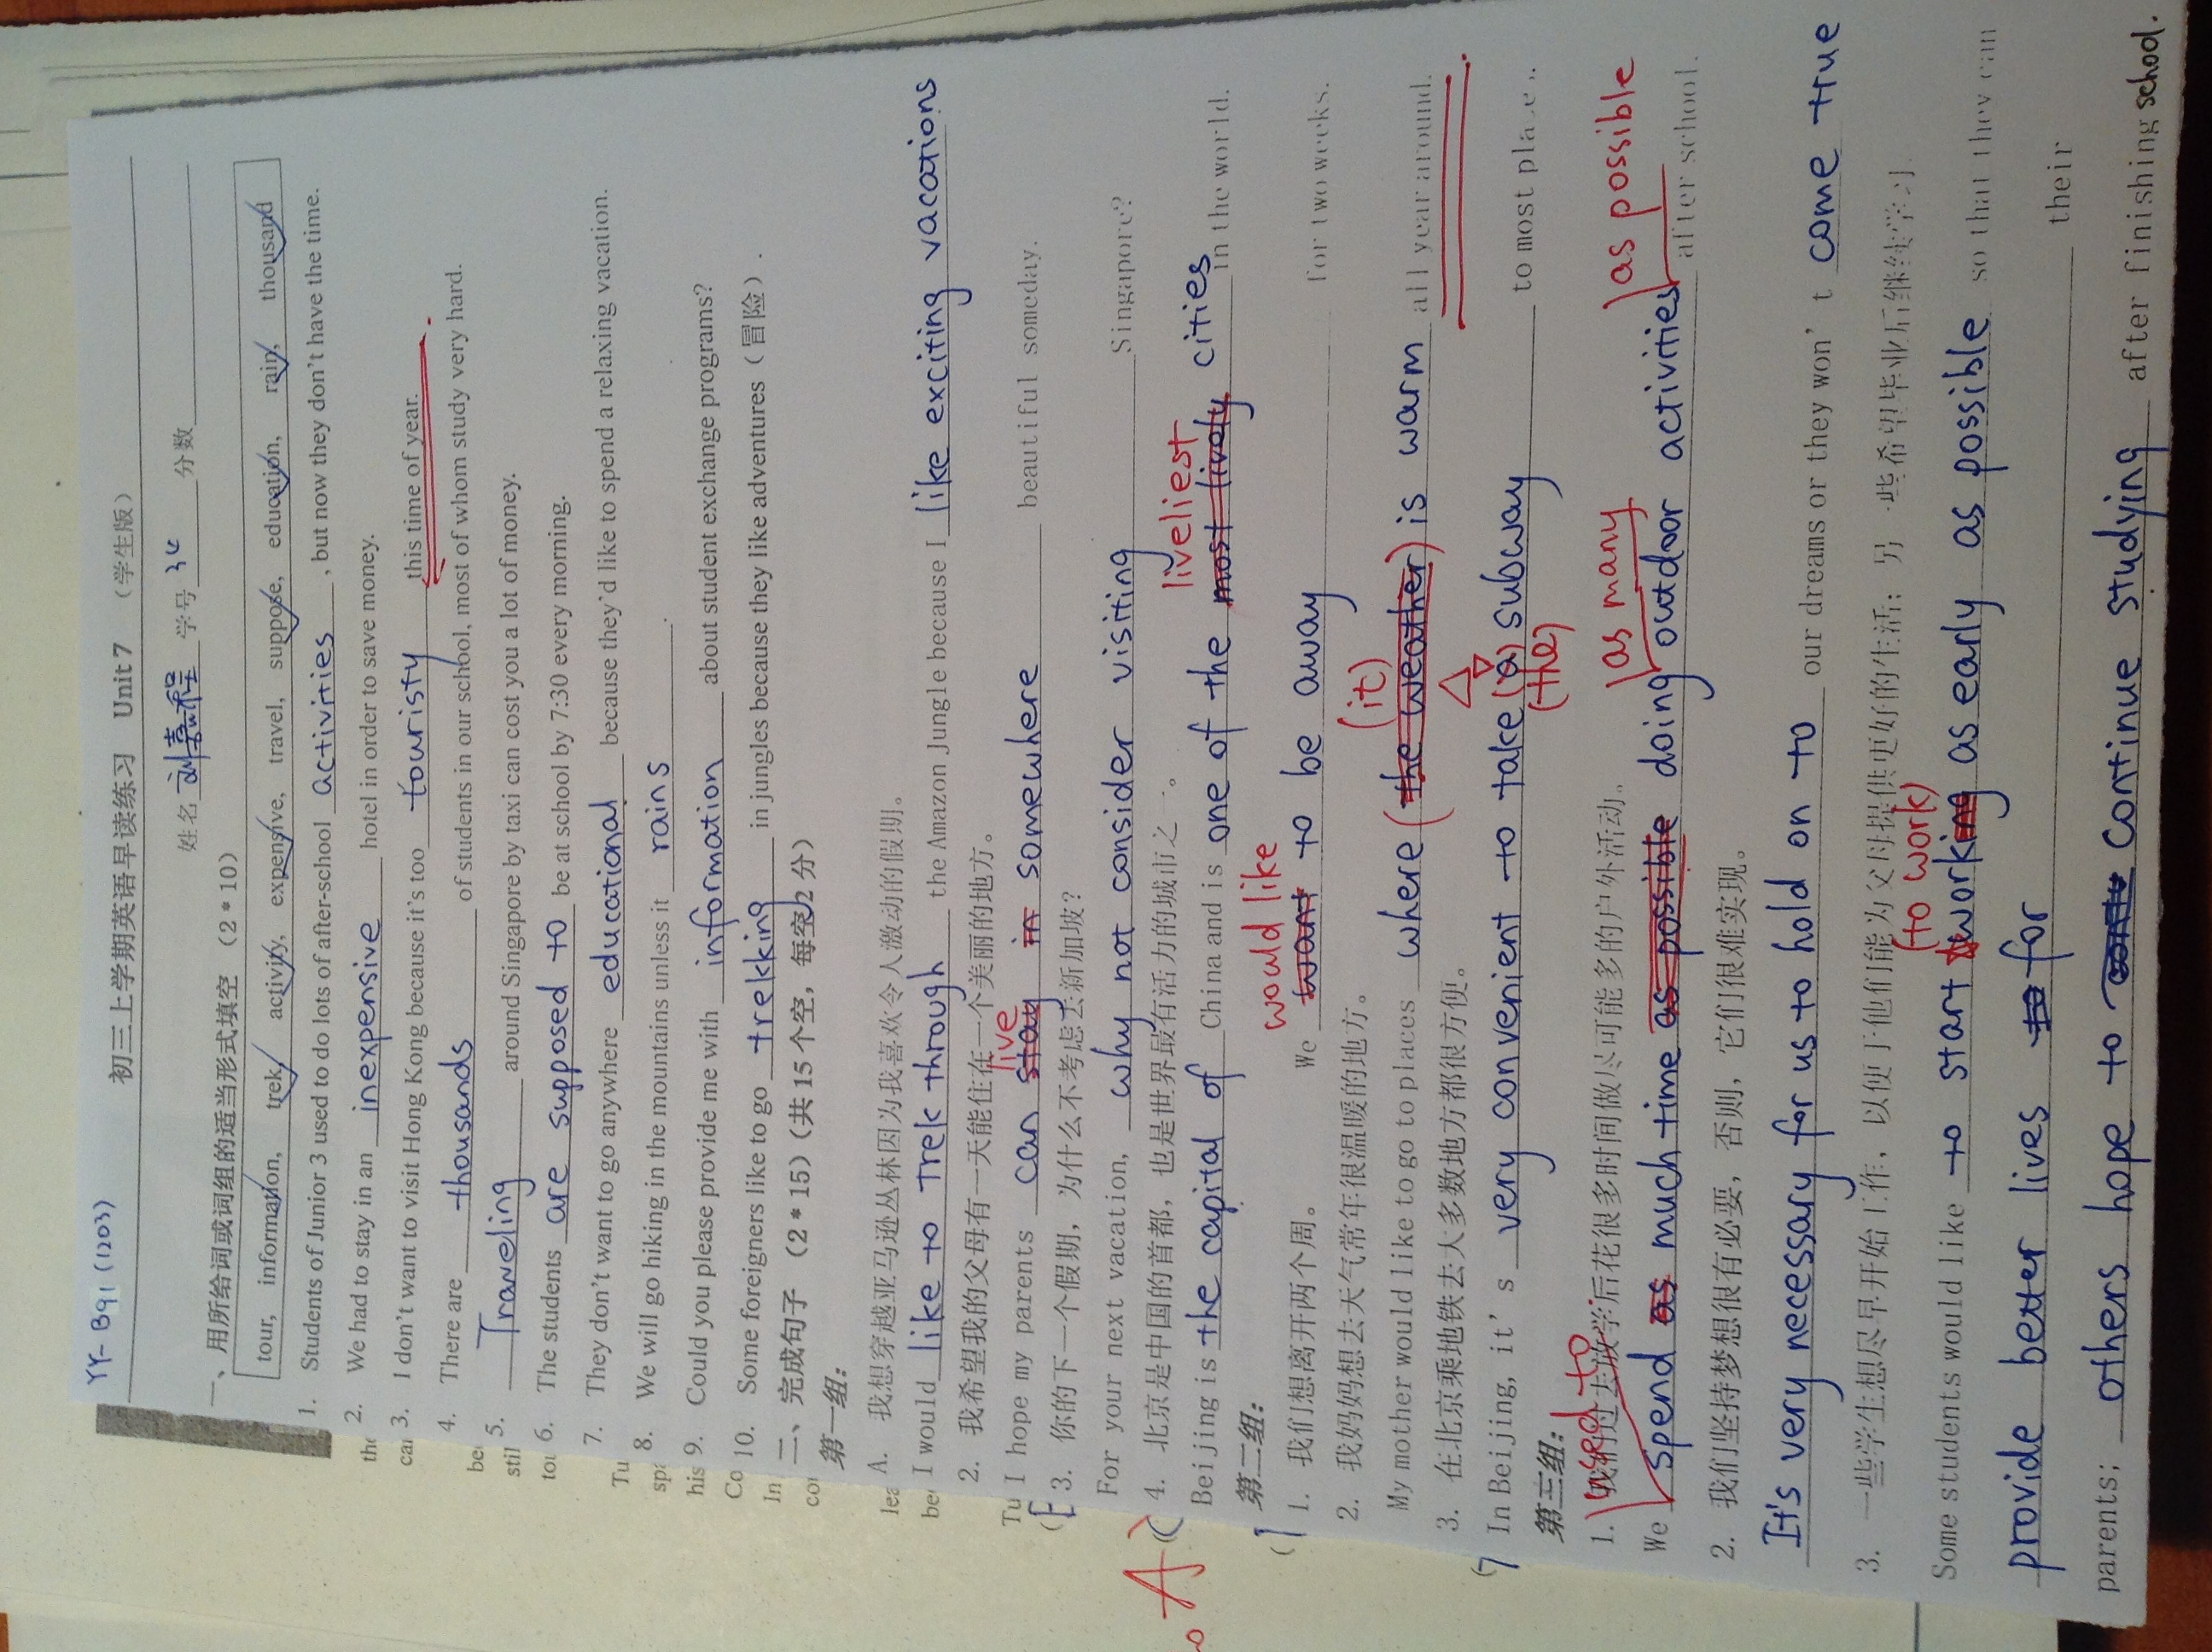 YY- B91 (1203)
初三上学期英语早读练习 Unit 7 （学生版）
姓名 刘嘉程 学号 34 分数
一、用所给词或词组的适当形式填空 （2*10）
tour, information, trek, activity, expensive, travel, suppose, education, rain, thousand
1. Students of Junior 3 used to do lots of after-school activities , but now they don't have the time.
2. We had to stay in an inexpensive hotel in order to save money.
3. I don't want to visit Hong Kong because it's too touristy this time of year.
4. There are thousands of students in our school, most of whom study very hard.
5. Traveling around Singapore by taxi can cost you a lot of money.
6. The students are supposed to be at school by 7:30 every morning.
7. They don't want to go anywhere educational because they'd like to spend a relaxing vacation.
8. We will go hiking in the mountains unless it rains .
9. Could you please provide me with information about student exchange programs?
10. Some foreigners like to go trekking in jungles because they like adventures（冒险）.
二、完成句子 （2*15）（共 15 个空，每空 2 分）
第一组：
A. 我想穿越亚马逊丛林因为我喜欢令人激动的假期。
I would like to trek through the Amazon Jungle because I like exciting vacations
2. 我希望我的父母有一天能住在一个美丽的地方。
live
I hope my parents can stay in somewhere beautiful someday.
3. 你的下一个假期，为什么不考虑去新加坡？
For your next vacation, why not consider visiting Singapore?
A
4. 北京是中国的首都，也是世界最有活力的城市之一。
liveliest
Beijing is the capital of China and is one of the most lively cities in the world.
第二组：
would like
1. 我们想离开两个周。 We want to be away for two weeks.
2. 我妈妈想去天气常年很温暖的地方。
(it)
My mother would like to go to places where (the weather) is warm all year around.
3. 在北京乘地铁去大多数地方都很方便。
In Beijing, it's very convenient to take (a) subway to most places.
(the)
第三组：
used to
1. 我们过去放学后花很多时间做尽可能多的户外活动。
as many as possible
We spend as much time as possible doing outdoor activities after school.
2. 我们坚持梦想很有必要，否则，它们很难实现。
It's very necessary for us to hold on to our dreams or they won't come true
3. 一些学生想尽早开始工作，以便于他们能为父母提供更好的生活；另一些希望毕业后继续学习.
(to work)
Some students would like to start working as early as possible so that they can
provide better lives to for their
parents; others hope to continue studying after finishing school.